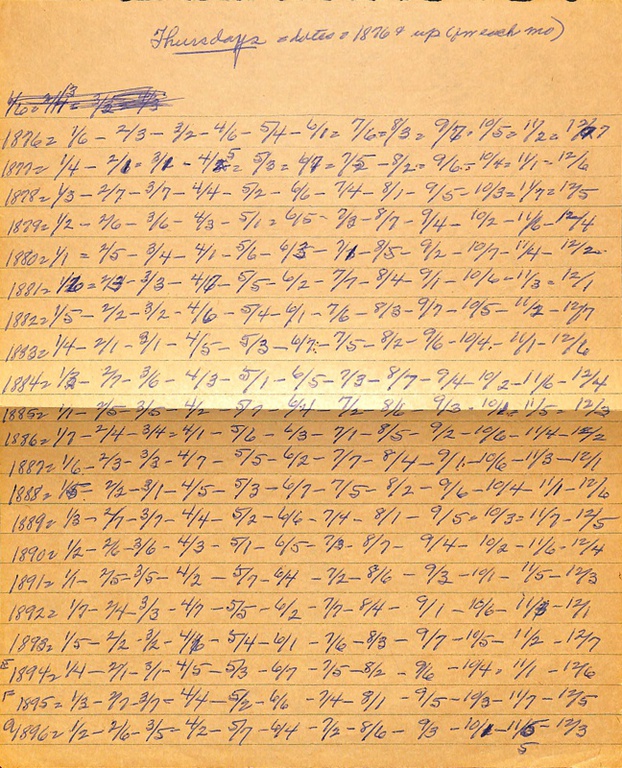 Thursdays = dates = 1876 & up (in each mo)
1/6 = 2/3 = 3/2 = 4/3
1876 = 1/6 - 2/3 - 3/2 - 4/6 - 5/4 - 6/1 = 7/6 = 8/3 = 9/7 - 10/5 = 11/2 = 12/7 7
1877 = 1/4 - 2/1 = 3/1 - 4/5 = 5/3 = 6/7 = 7/5 - 8/2 = 9/6 - 10/4 = 11/1 - 12/6
1878 = 1/3 - 2/7 - 3/7 - 4/4 - 5/2 - 6/6 - 7/4 - 8/1 - 9/5 - 10/3 = 11/7 = 12/5
1879 = 1/2 - 2/6 - 3/6 - 4/3 - 5/1 = 6/5 - 7/3 - 8/7 - 9/4 - 10/2 - 11/6 - 12/4
1880 = 1/1 = 2/5 - 3/4 - 4/1 - 5/6 - 6/3 - 7/1 - 8/5 - 9/2 - 10/7 - 11/4 - 12/2
1881 = 1/6 = 2/3 - 3/3 - 4/7 - 5/5 - 6/2 - 7/7 - 8/4 - 9/1 - 10/6 - 11/3 = 12/1
1882 = 1/5 - 2/2 - 3/2 - 4/6 - 5/4 - 6/1 - 7/6 - 8/3 - 9/7 - 10/5 - 11/2 - 12/7
1883 = 1/4 - 2/1 - 3/1 - 4/5 - 5/3 - 6/7 - 7/5 - 8/2 - 9/6 - 10/4 - 11/1 - 12/6
1884 = 1/3 - 2/7 - 3/6 - 4/3 - 5/1 - 6/5 - 7/3 - 8/7 - 9/4 - 10/2 - 11/6 - 12/4
1885 = 1/1 - 2/5 - 3/5 - 4/2 - 5/7 - 6/4 - 7/2 - 8/6 - 9/3 - 10/1 = 11/5 = 12/3
1886 = 1/7 - 2/4 - 3/4 = 4/1 - 5/6 - 6/3 - 7/1 - 8/5 - 9/2 - 10/6 - 11/4 - 12/2
1887 = 1/6 - 2/3 - 3/3 - 4/7 - 5/5 - 6/2 - 7/7 - 8/4 - 9/1 - 10/6 - 11/3 - 12/1
1888 = 1/5 - 2/2 - 3/1 - 4/5 - 5/3 - 6/7 - 7/5 - 8/2 - 9/6 - 10/4 - 11/1 - 12/6
1889 = 1/3 - 2/7 - 3/7 - 4/4 - 5/2 - 6/6 - 7/4 - 8/1 - 9/5 = 10/3 = 11/7 - 12/5
1890 = 1/2 - 2/6 - 3/6 - 4/3 - 5/1 - 6/5 - 7/3 - 8/7 - 9/4 - 10/2 - 11/6 - 12/4
1891 = 1/1 - 2/5 - 3/5 - 4/2 - 5/7 - 6/4 - 7/2 - 8/6 - 9/3 - 10/1 - 11/5 - 12/3
1892 = 1/7 - 2/4 - 3/3 - 4/7 - 5/5 - 6/2 - 7/7 - 8/4 - 9/1 - 10/6 - 11/3 - 12/1
1893 = 1/5 - 2/2 - 3/2 - 4/6 - 5/4 - 6/1 - 7/6 - 8/3 - 9/7 - 10/5 - 11/2 - 12/7
E 1894 = 1/4 - 2/1 - 3/1 - 4/5 - 5/3 - 6/7 - 7/5 - 8/2 - 9/6 - 10/4 = 11/1 - 12/6
F 1895 = 1/3 - 2/7 - 3/7 = 4/4 - 5/2 - 6/6 - 7/4 - 8/1 - 9/5 - 10/3 - 11/7 - 12/5
G 1896 = 1/2 - 2/6 - 3/5 = 4/2 - 5/7 - 6/4 - 7/2 - 8/6 - 9/3 - 10/1 - 11/5 - 12/3
5